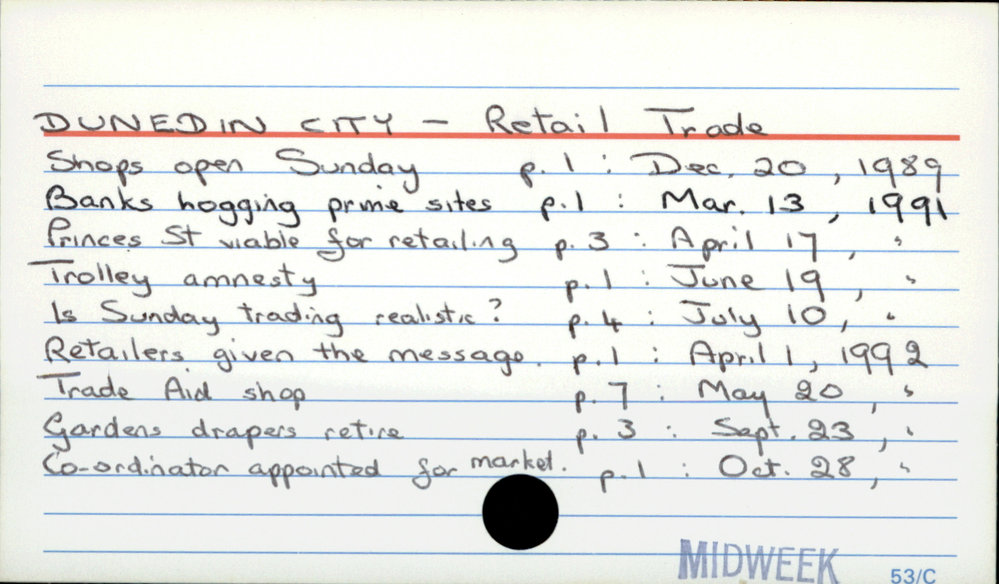 DUNEDIN CITY - Retail Trade
Shops open Sunday p. 1 : Dec. 20, 1989
Banks hogging prime sites p. 1 : Mar. 13, 1991
Princes St viable for retailing p. 3 : April 17, "
Trolley amnesty p. 1 : June 19, "
Is Sunday trading realistic? p. 4 : July 10, "
Retailers given the message. p. 1 : April 1, 1992
Trade Aid shop p. 7 : May 20, "
Gardens drapers retire p. 3 : Sept. 23, "
Co-ordinator appointed for market. p. 1 : Oct. 28, "
MIDWEEK
53/C